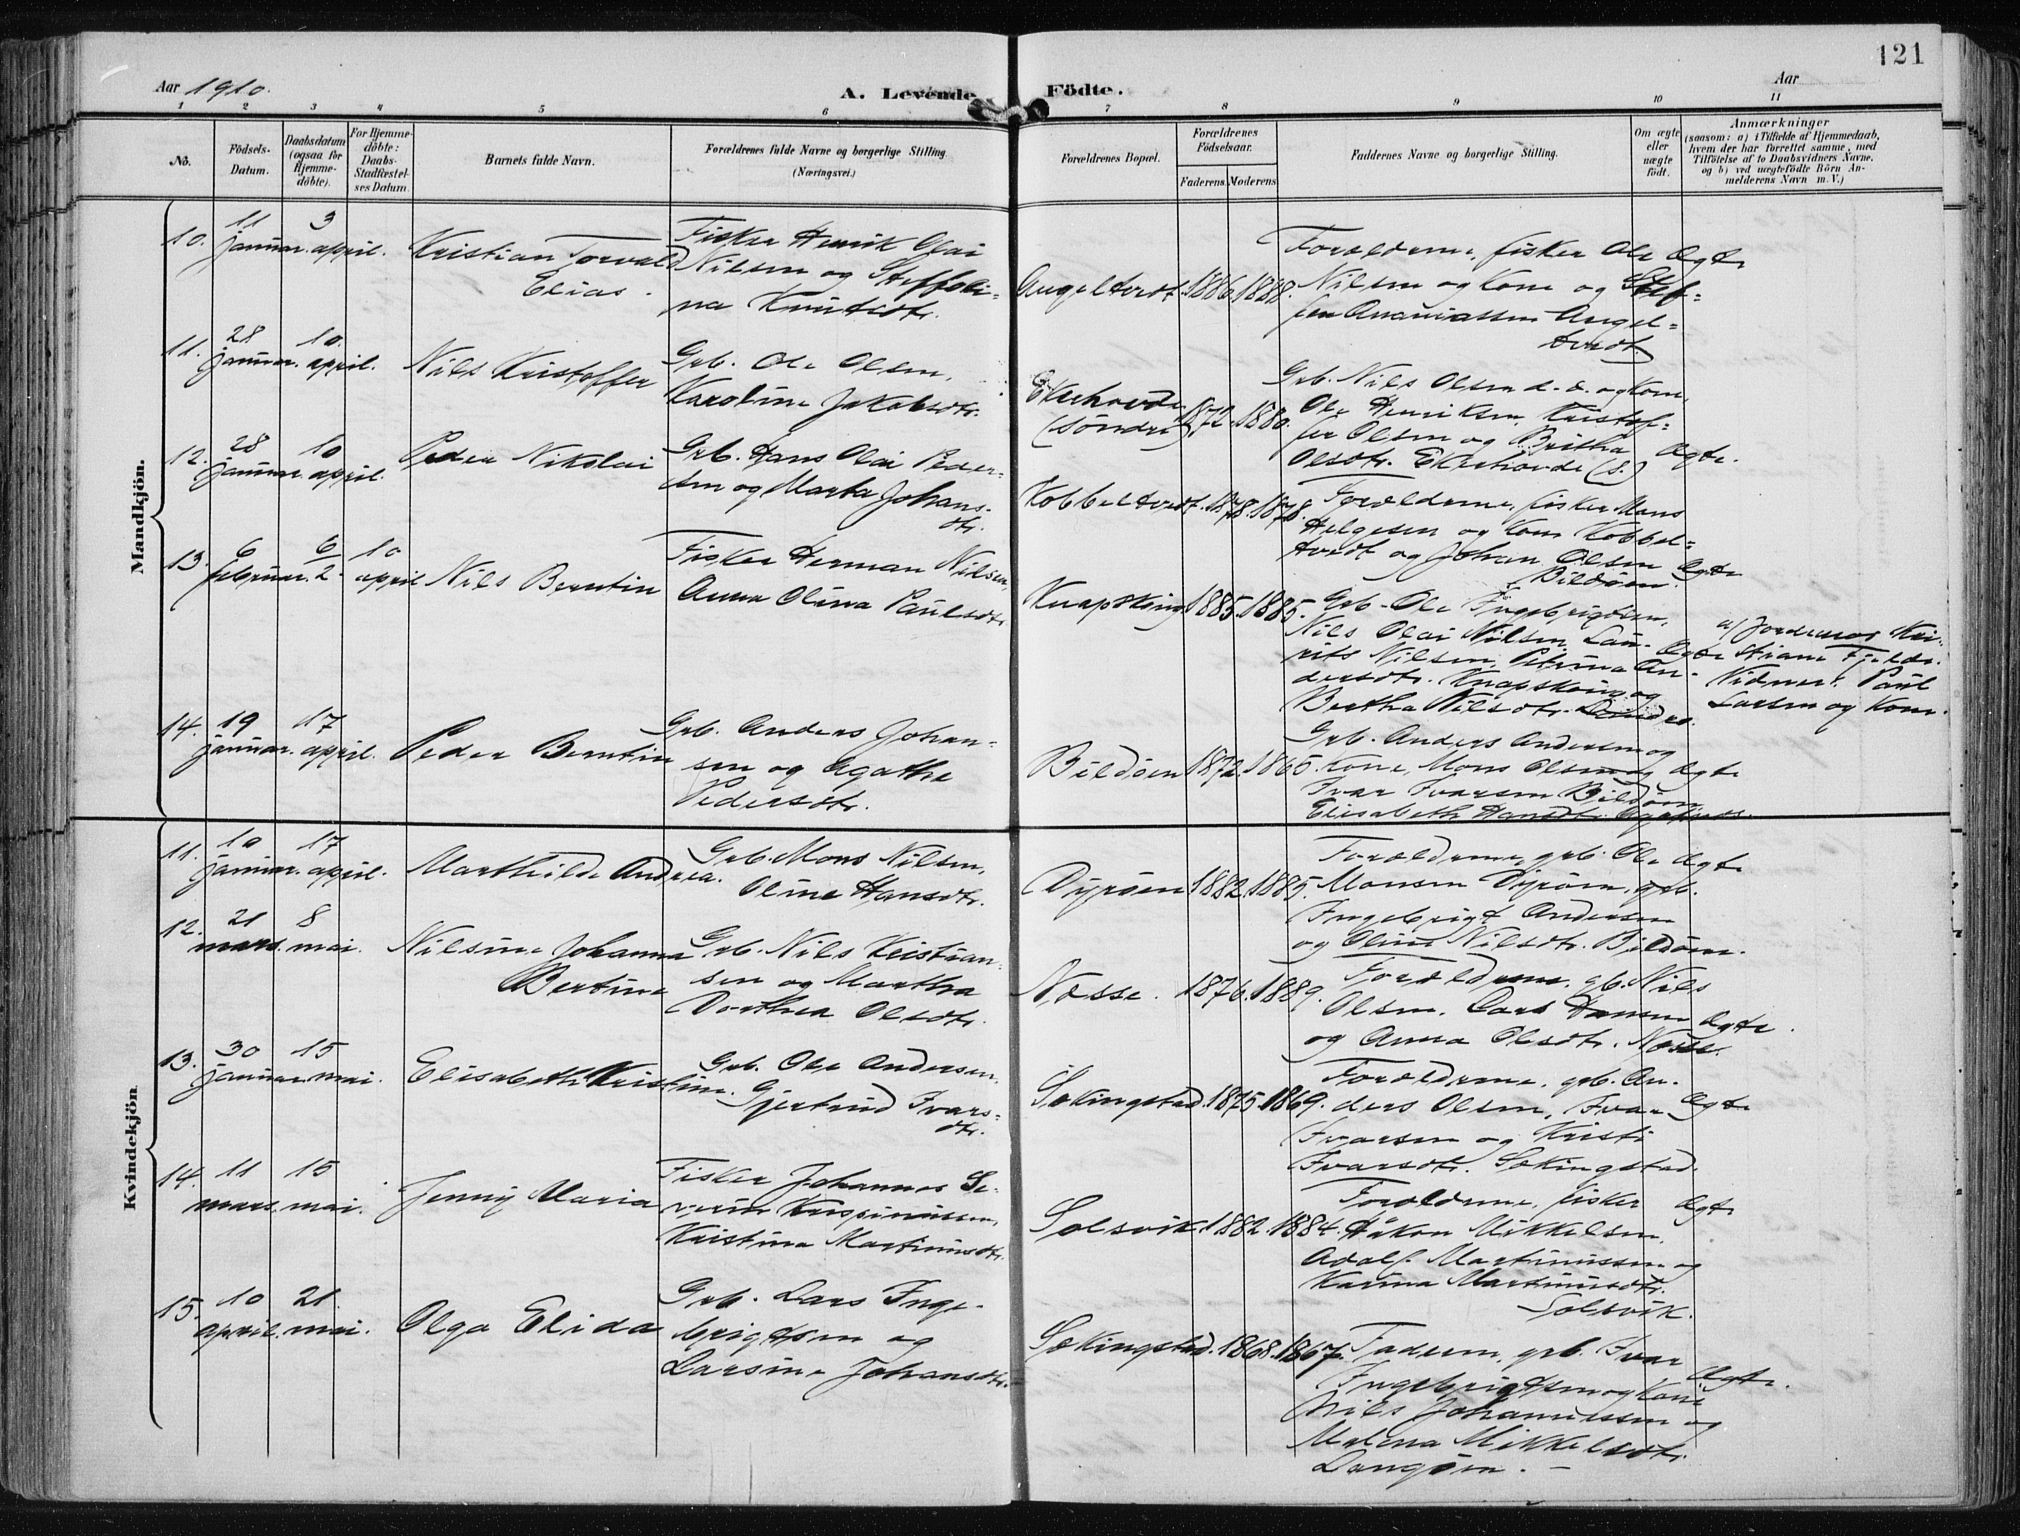 121
Aar 1910.
A. Levende Födte.
Aar
1 2 3 4 5 6 7 8 9 10 11
No.
Födsels-Datum.
Daabsdatum (ogsaa for Hjemme-döbte).
For Hjemme-döbte: Daabs-Stadfæstel-ses Datum.
Barnets fulde Navn.
Forældrenes fulde Navne og borgerlige Stilling.
(Næringsvei.)
Forældrenes Bopæl.
Forældrenes Födselsaar.
Faderens. Moderens.
Faddernes Navne og borgerlige Stilling.
Om ægte eller uægte födt.
Anmærkninger
(saasom: a) i Tilfælde af Hjemmedaab,
hvem der har forrettet samme, med
Tilföielse af to Daabsvidners Navne,
og b) ved uægtefödte Börn An-
melderens Navn m. V.)
Mandkjön.
10. 11 januar. 3 april. Kristian Torvald
Elias.
Fisker Henrik Olai
Nilsen og Steffeli-
na Knutsdtr.
Angeltvedt. 1886. 1888.
Forældrene, fisker Ole
Nilsen og kone og Stef-
fen Ananiassen Angel-
tvedt.
Ægte
11. 28 januar. 10. april. Nils Kristoffer
Grb. Ole Olsen,
Karoline Jakobsdtr.
Ekerhovde
(søndre). 1872. 1880.
Grb. Nils Olsen d. æ. og kone,
Ole Henriksen, Kristof-
fer Olsen og Britha
Olsdtr. Ekerhovde (s.)
Ægte.
12. 28 januar 10 april. Peder Nikolai
Grb. Hans Olai Peder-
sen og Marta Johans-
dtr.
Kobbeltvedt. 1878. 1878.
Forældrene, fisker Mons
Helgesen og kone Kobbel-
tvedt og Johan Olsen
Bildøen.
Ægte
13. 6 februar. 6/2. 10 april Nils Berntin
Fisker Herman Nilsen,
Anna Olina Paulsdtr.
Knapskog 1885. 1885.
Grb. Ole Ingebrigtsen,
Nils Olai Nilsen, Lau-
rits Nilsen, Petrina An-
dersdtr. Knapskog og
Bertha Nilsdtr.
Ægte
a) Jordemor Kri-
stiane Fjeldo.
Vidner: Paul
Larsen og kone.
14. 19 januar. 17 april. Peder Berntin
Grb. Anders Johan-
sen og Agatha
Pedersdtr.
Bildøen 1872. 1865.
Grb. Anders Andersen og
kone, Mons Olsen og
Ivar Ivarsen Bildøen
Elisabeth Hansdtr.
Ægte
Kvindekjön
11. 10 januar. 17 april. Marthilde Andrea.
Grb. Mons Nilsen,
Oline Hansdtr.
Dyrøen 1882. 1885.
Forældrene, grb. Ole
Monsen Dyrøen, grb.
Ingebrigt Andersen
og Oline Nilsdtr. Bildøen.
Ægte
12. 21 mars. 8 mai. Nilsine Johanna
Bertine
Grb. Nils Kristian-
sen og Martha
Dorthea Olsdtr.
Næsse. 1876. 1889.
Forældrene, grb. Nils
Olsen, Lars Hansen
og Anna Olsdtr. Næsse.
Ægte.
13. 30 januar. 15 mai. Elisabeth Kristine.
Grb. Ole Andersen,
Gjertrud Ivars-
dtr.
Sækingstad. 1875. 1869.
Forældrene, grb. An-
ders Olsen, Ivar
Ivarsen og Kristi
Ivarsdtr. Sækingstad.
Ægte
14. 11 mars. 15 mai. Jenny Maria
Fisker Johannes Se-
verin Krispinussen,
Kristina Martinusdtr.
Solsvik 1882. 1884.
Forældrene, fisker
Håkon Mikkelsen,
Adolf Martinussen og
Karina Martinusdtr.
Solsvik.
Ægte
15. 10 april. 21. mai. Olga Elida
Grb. Lars Inge-
brigtsen og
Larsine Johansdtr.
Sækingstad. 1868. 1867.
Faderen, grb. Ivar
Ingebrigtsen og kone
Nils Johannessen og
Malena Mikkelsdtr.
Langøen.
Ægte.